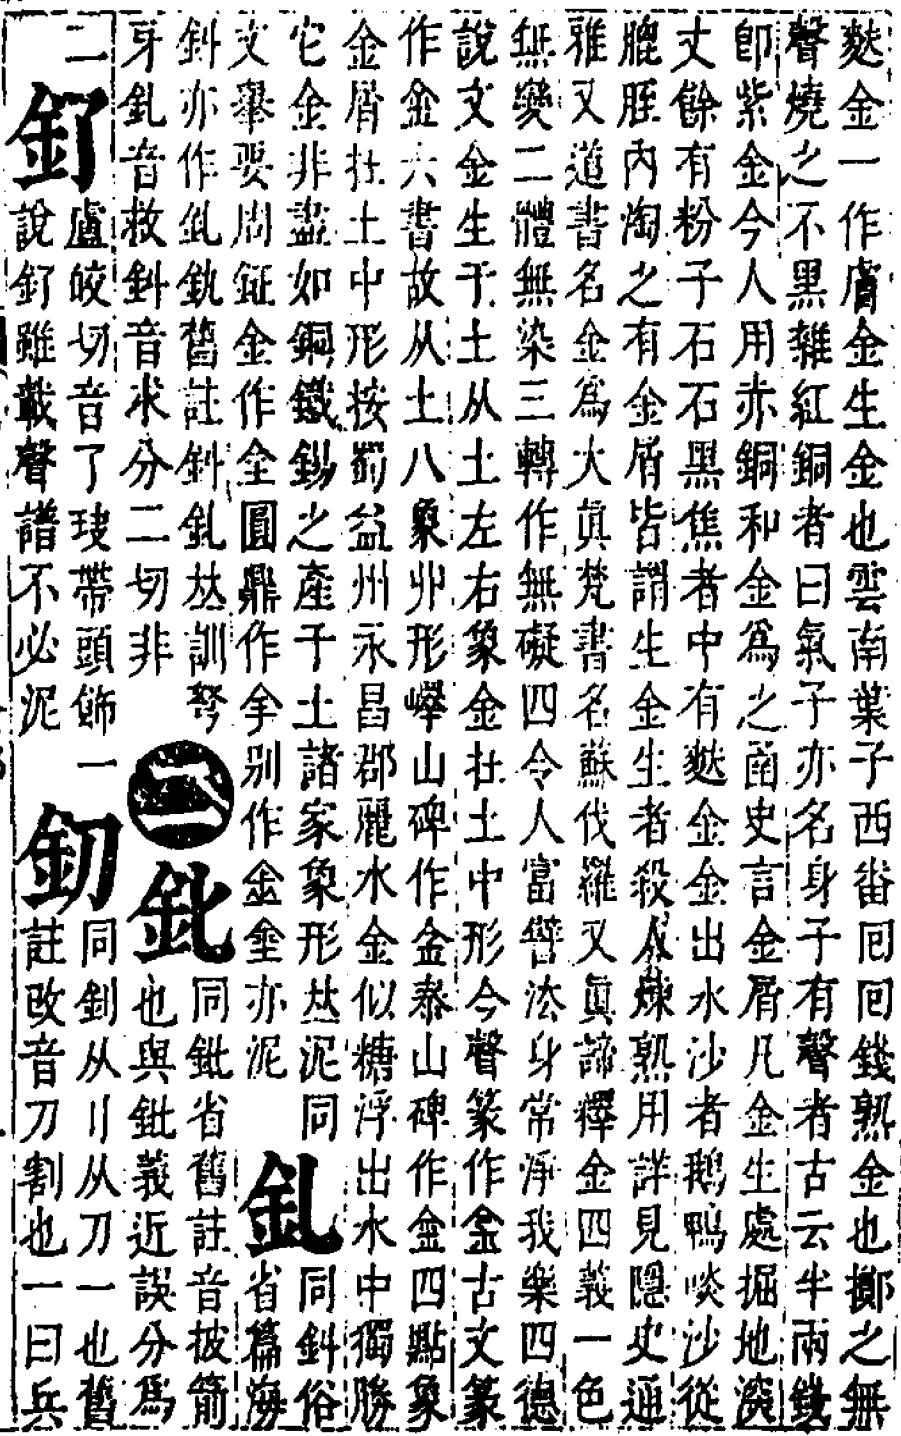 麩金一作膚金生金也雲南葉子西畨囘囘錢熟金也擲之無
聲燒之不黑雜紅銅者曰氣子亦名身子有聲者古云半兩錢
卽紫金今人用赤銅和金爲之 史言金屑凡金生處掘地深
丈餘有粉子石石黑焦者中有麩金金出水沙者鵝鴨啖沙從
膍胵內淘之有金屑皆謂生金生者殺人煉熟用詳見隱史通
雅又道書名金爲大眞梵書名蘇伐羅又眞諦釋金四義一色
無變二體無染三轉作無礙四令人富譬法身常淨我樂四德
說文金生于土从土左右象金在土中形今聲篆作金古文篆
作金六書故从土八象丱形嶧山碑作金泰山碑作金四點象
金屑在土中形按蜀益州永昌郡麗水金似糖浮出水中獨勝
它金非盡如銅鐵錫之產于土諸家象形𠀤泥
文舉要周鉦金作全圓鼎作 别作 亦泥
同
釓
同䤛俗
省篇海
䤛亦作釓 舊註䤛釓𠀤訓弩
牙釓音救䤛音求分二切非
二
釓
同鈚省舊註音披箭
也與鈚義近誤分爲
二
釕
盧皎切音了 帶頭飾一
說釕雖載聲譜不必泥
釖
同釗从刂从刀一也舊
註改音刀割也一曰兵